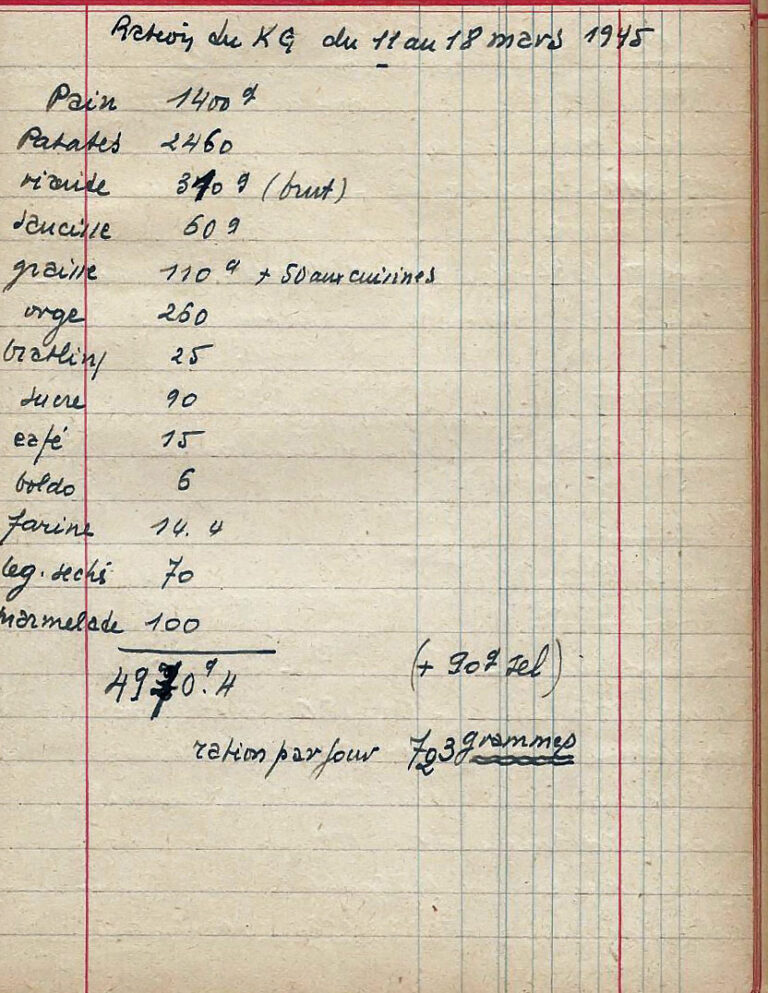 Ration du KG du 11 au 18 mars 1945
Pain 1400 g
Patates 2460
viande 310 g (brut)
saucisse 60 g
graisse 110 g + 50 aux cuisines
orge 260
bratling 25
sucre 90
café 15
boldo 6
farine 14.4
leg. sechs 70
marmelade 100
4920g.4 (+ 90g sel)
ration par jour 703 grammes